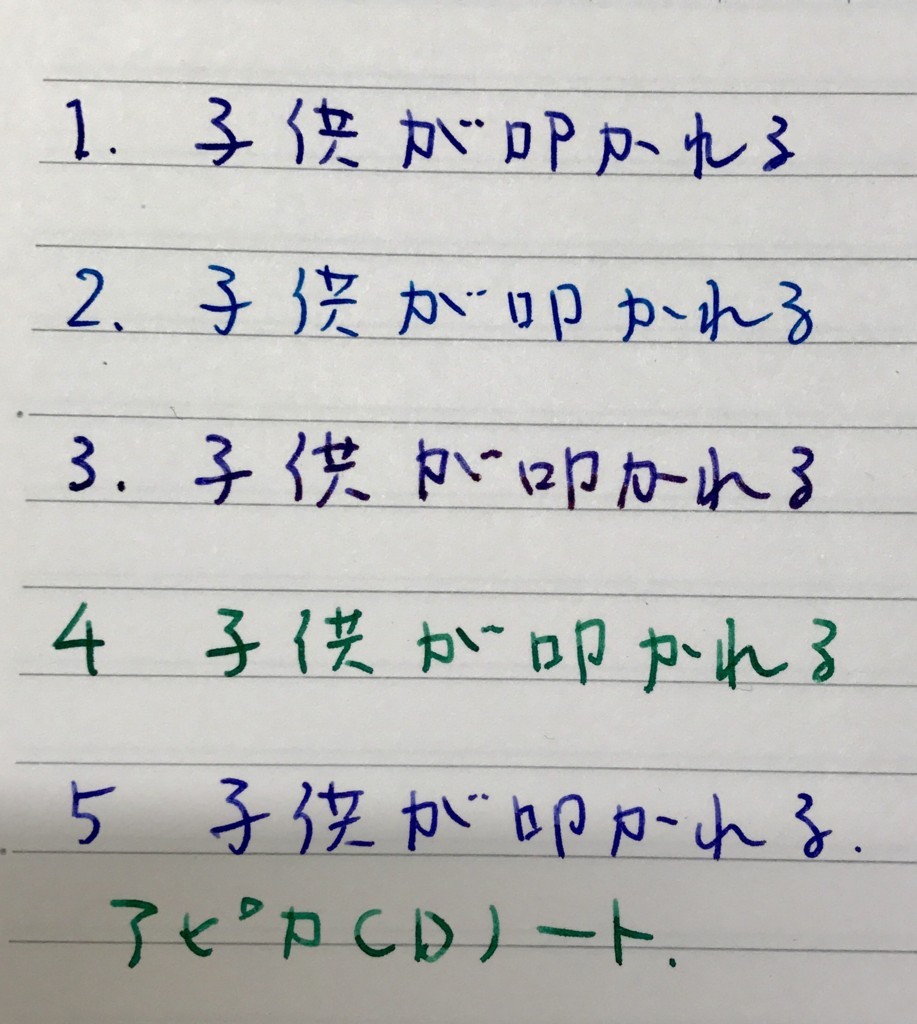 1. 子供が叩かれる
2. 子供が叩かれる
3. 子供が叩かれる
4 子供が叩かれる
5 子供が叩かれる.
アピカ(D)ノート.